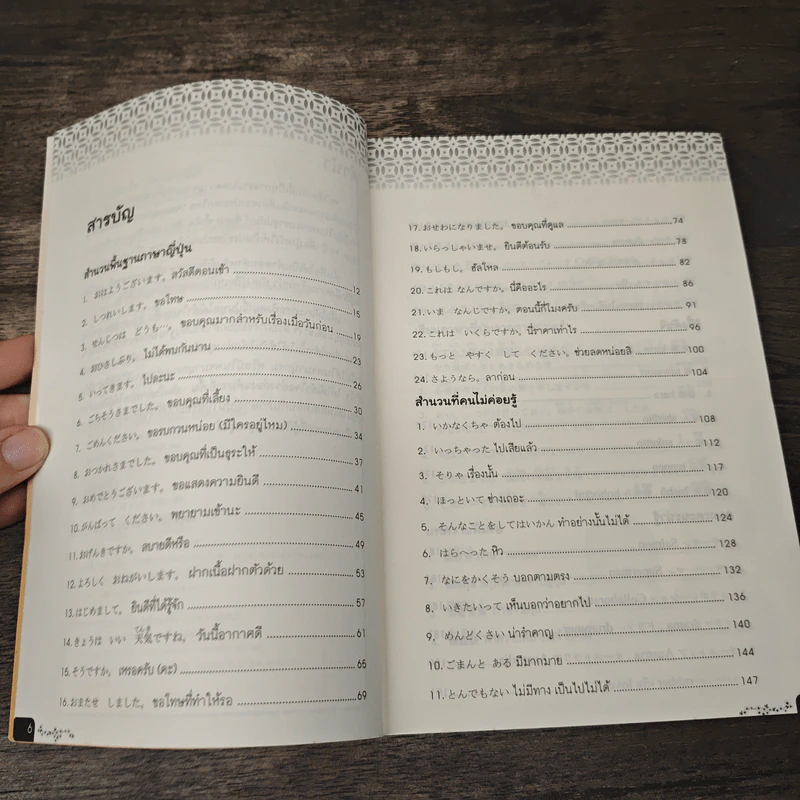 สารบัญ
สำนวนพื้นฐานภาษาญี่ปุ่น
1. おはようございます。สวัสดีตอนเช้า ........ 12
2. しつれいします。ขอโทษ ........ 15
3. せんじつは どうも…。ขอบคุณมากสำหรับเรื่องเมื่อวันก่อน ........ 19
4. おひさしぶり。ไม่ได้พบกันนาน ........ 23
5. いってきます。ไปละนะ ........ 26
6. ごちそうさまでした。ขอบคุณที่เลี้ยง ........ 30
7. ごめんください。ขอรบกวนหน่อย (มีใครอยู่ไหม) ........ 34
8. おつかれさまでした。ขอบคุณที่เป็นธุระให้ ........ 37
9. おめでとうございます。ขอแสดงความยินดี ........ 41
10. がんばって ください。พยายามเข้านะ ........ 45
11. おげんきですか。สบายดีหรือ ........ 49
12. よろしく おねがいします。ฝากเนื้อฝากตัวด้วย ........ 53
13. はじめまして。ยินดีที่ได้รู้จัก ........ 57
14. きょうは いい 天気ですね。วันนี้อากาศดี ........ 61
15. そうですか。เหรอครับ (คะ) ........ 65
16. おまたせ しました。ขอโทษที่ทำให้รอ ........ 69
6
17. おせわになりました。ขอบคุณที่ดูแล ........ 74
18. いらっしゃいませ。ยินดีต้อนรับ ........ 78
19. もしもし。ฮัลโหล ........ 82
20. これは なんですか。นี่คืออะไร ........ 86
21. いま なんじですか。ตอนนี้กี่โมงครับ ........ 91
22. これは いくらですか。นี่ราคาเท่าไร ........ 96
23. もっと やすく して ください。ช่วยลดหน่อยสิ ........ 100
24. さようなら。ลาก่อน ........ 104
สำนวนที่คนไม่ค่อยรู้
1. いかなくちゃ ต้องไป ........ 108
2. いっちゃった ไปเสียแล้ว ........ 112
3. そりゃ เรื่องนั้น ........ 117
4. ほっといて ช่างเถอะ ........ 120
5. そんなことをしてはいかん ทำอย่างนั้นไม่ได้ ........ 124
6. はらへった หิว ........ 128
7. なにをかくそう บอกตามตรง ........ 132
8. いきたいって เห็นบอกว่าอยากไป ........ 136
9. めんどくさい น่ารำคาญ ........ 140
10. ごまんと ある มีมากมาย ........ 144
11. とんでもない ไม่มีทาง เป็นไปไม่ได้ ........ 147